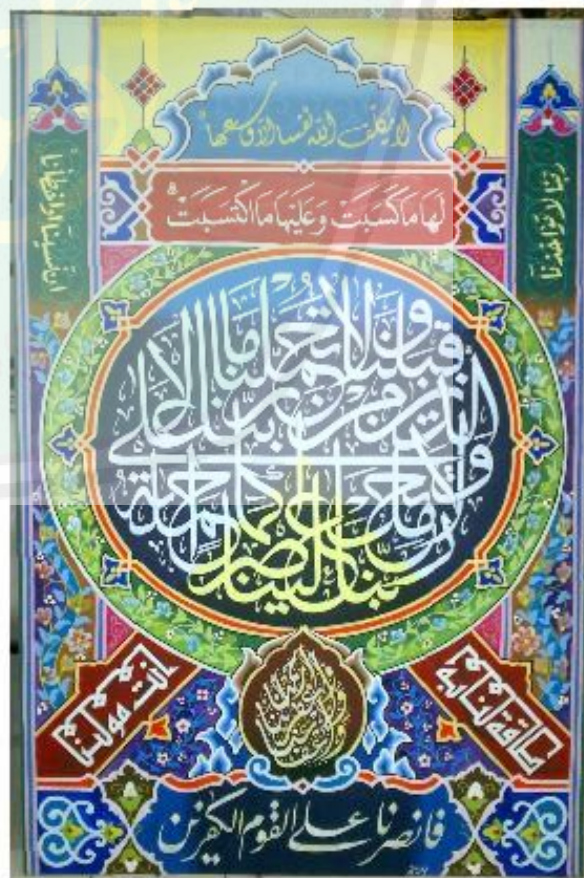 لا يكلف الله نفسا الا وسعها
لَهَا مَا كَسَبَتْ وَعَلَيْهَا مَا اكْتَسَبَتْ
ربنا لا تؤاخذنا
ان نسينا او اخطأنا
ربنا ولا تحمل علينا اصرا كما حملته على الذين من قبلنا ربنا ولا تحملنا ما لا
طاقة لنا به
واعف عنا واغفر لنا وارحمنا
انت مولىنا
فانصرنا على القوم الكفرين